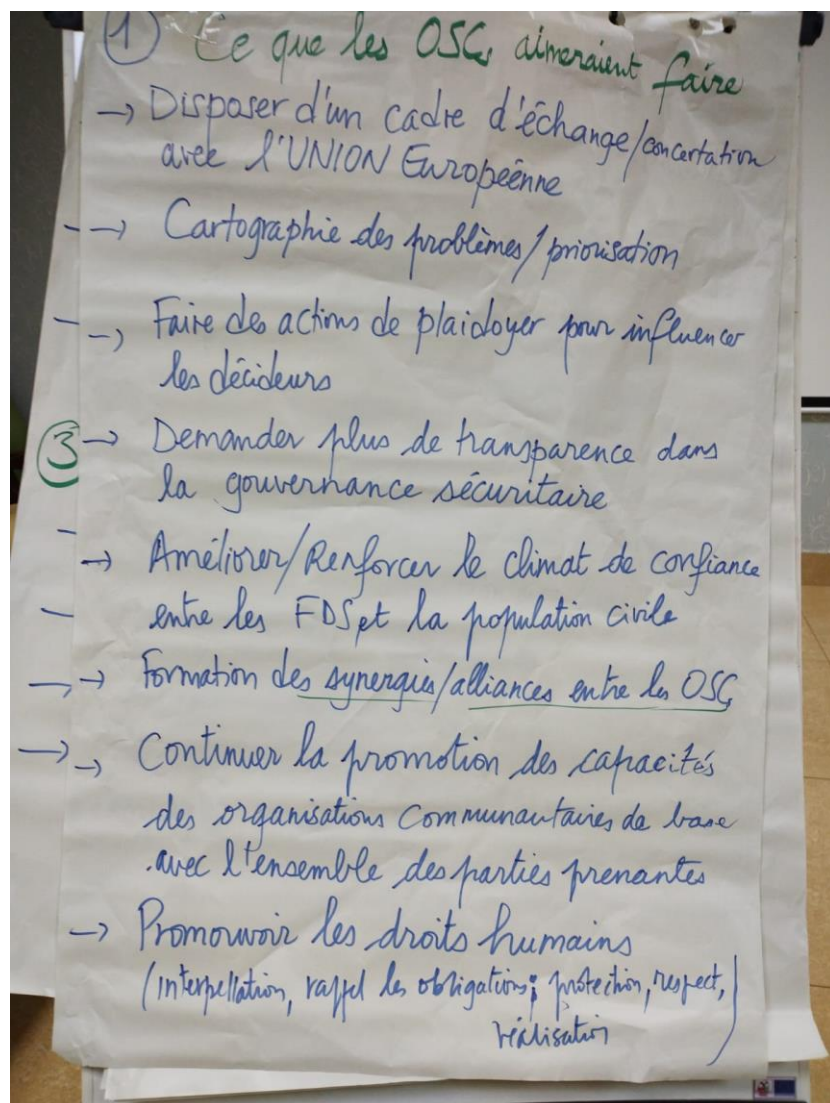 ① Ce que les OSC aimeraient faire
→ Disposer d'un cadre d'échange/concertation
avec l'UNION Européenne
→ Cartographie des problèmes/priorisation
→ Faire des actions de plaidoyer pour influencer
les décideurs
③ → Demander plus de transparence dans
la gouvernance sécuritaire
→ Améliorer/Renforcer le climat de confiance
entre les FDS et la population civile
→ Formation des synergies/alliances entre les OSC
→ Continuer la promotion des capacités
des organisations communautaires de base
avec l'ensemble des parties prenantes
→ Promouvoir les droits humains
(interpellation, rappel les obligations; protection, respect,
réalisation)